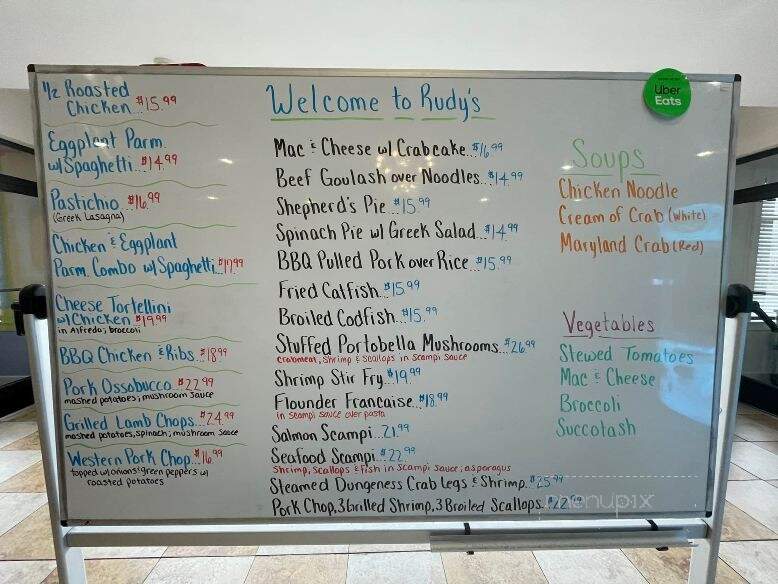 Welcome to Rudy's
1/2 Roasted
Chicken...$15.99
Eggplant Parm.
w/Spaghetti...$14.99
Pastichio...$16.99
(Greek Lasagna)
Chicken & Eggplant
Parm. Combo w/Spaghetti...$17.99
Cheese Tortellini
w/Chicken $19.99
in Alfredo; broccoli
BBQ Chicken & Ribs...$18.99
Pork Ossobucco...$22.99
mashed potatoes; mushroom sauce
Grilled Lamb Chops...$24.99
mashed potatoes, spinach; mushroom sauce
Western Pork Chop...$16.99
topped w/onions: green peppers w/
roasted potatoes
Mac & Cheese w/ Crabcake...$16.99
Beef Goulash over Noodles...$14.99
Shepherd's Pie...$15.99
Spinach Pie w/ Greek Salad...$14.99
BBQ Pulled Pork over Rice...$15.99
Fried Catfish...$15.99
Broiled Codfish...$15.99
Stuffed Portobella Mushrooms...$26.99
crabmeat, shrimp & scallops in scampi sauce
Shrimp Stir Fry...$19.99
Flounder Francaise...$18.99
in scampi sauce over pasta
Salmon Scampi...21.99
Seafood Scampi...$22.99
Shrimp, scallops & fish in scampi sauce; asparagus
Steamed Dungeness Crab Legs & Shrimp...$25.99
Pork Chop, 3 Grilled Shrimp, 3 Broiled Scallops...$22.99
Uber
Eats
Soups
Chicken Noodle
Cream of Crab (White)
Maryland Crab (Red)
Vegetables
Stewed Tomatoes
Mac & Cheese
Broccoli
Succotash
menupix